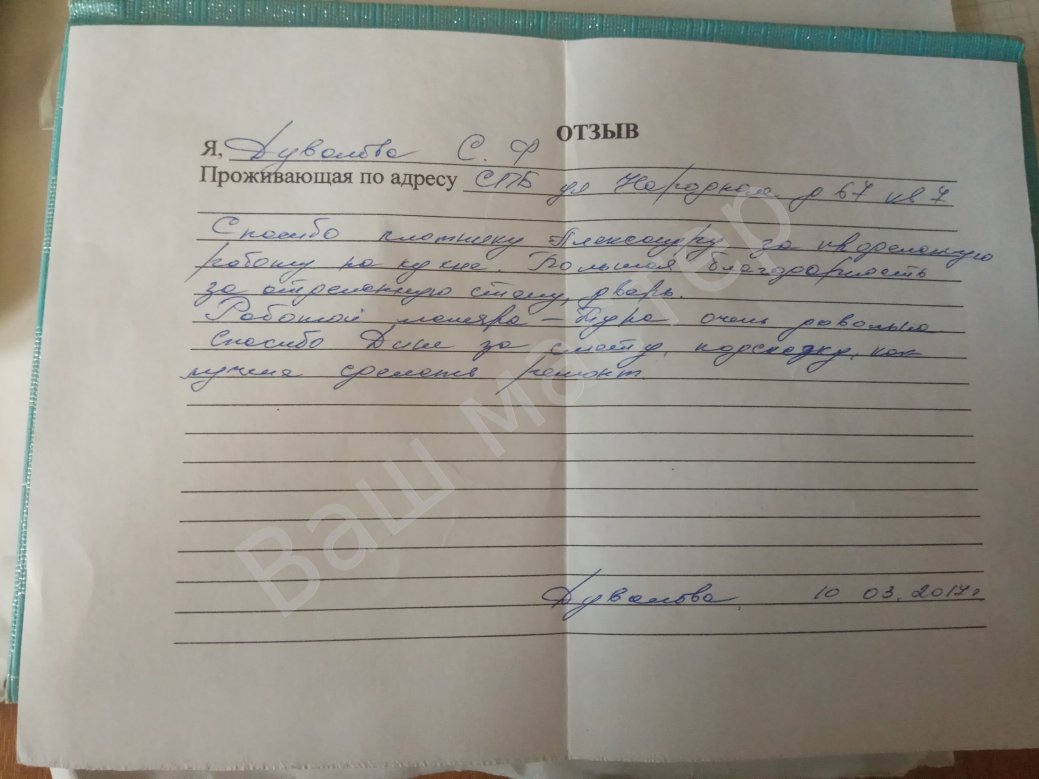 ОТЗЫВ
Я, Дувалова С. Ф
Проживающая по адресу СПБ ул Народная д 67 кв 7
Спасибо плотнику Александру за проделанную
работу на кухне. Большая благодарность
за отделанную стену, дверь.
Работой маляра – очень довольна
Спасибо за смету, подсказку, как
лучше сделать ремонт.
Дувалова 10 03. 2017г
Ваш мастер